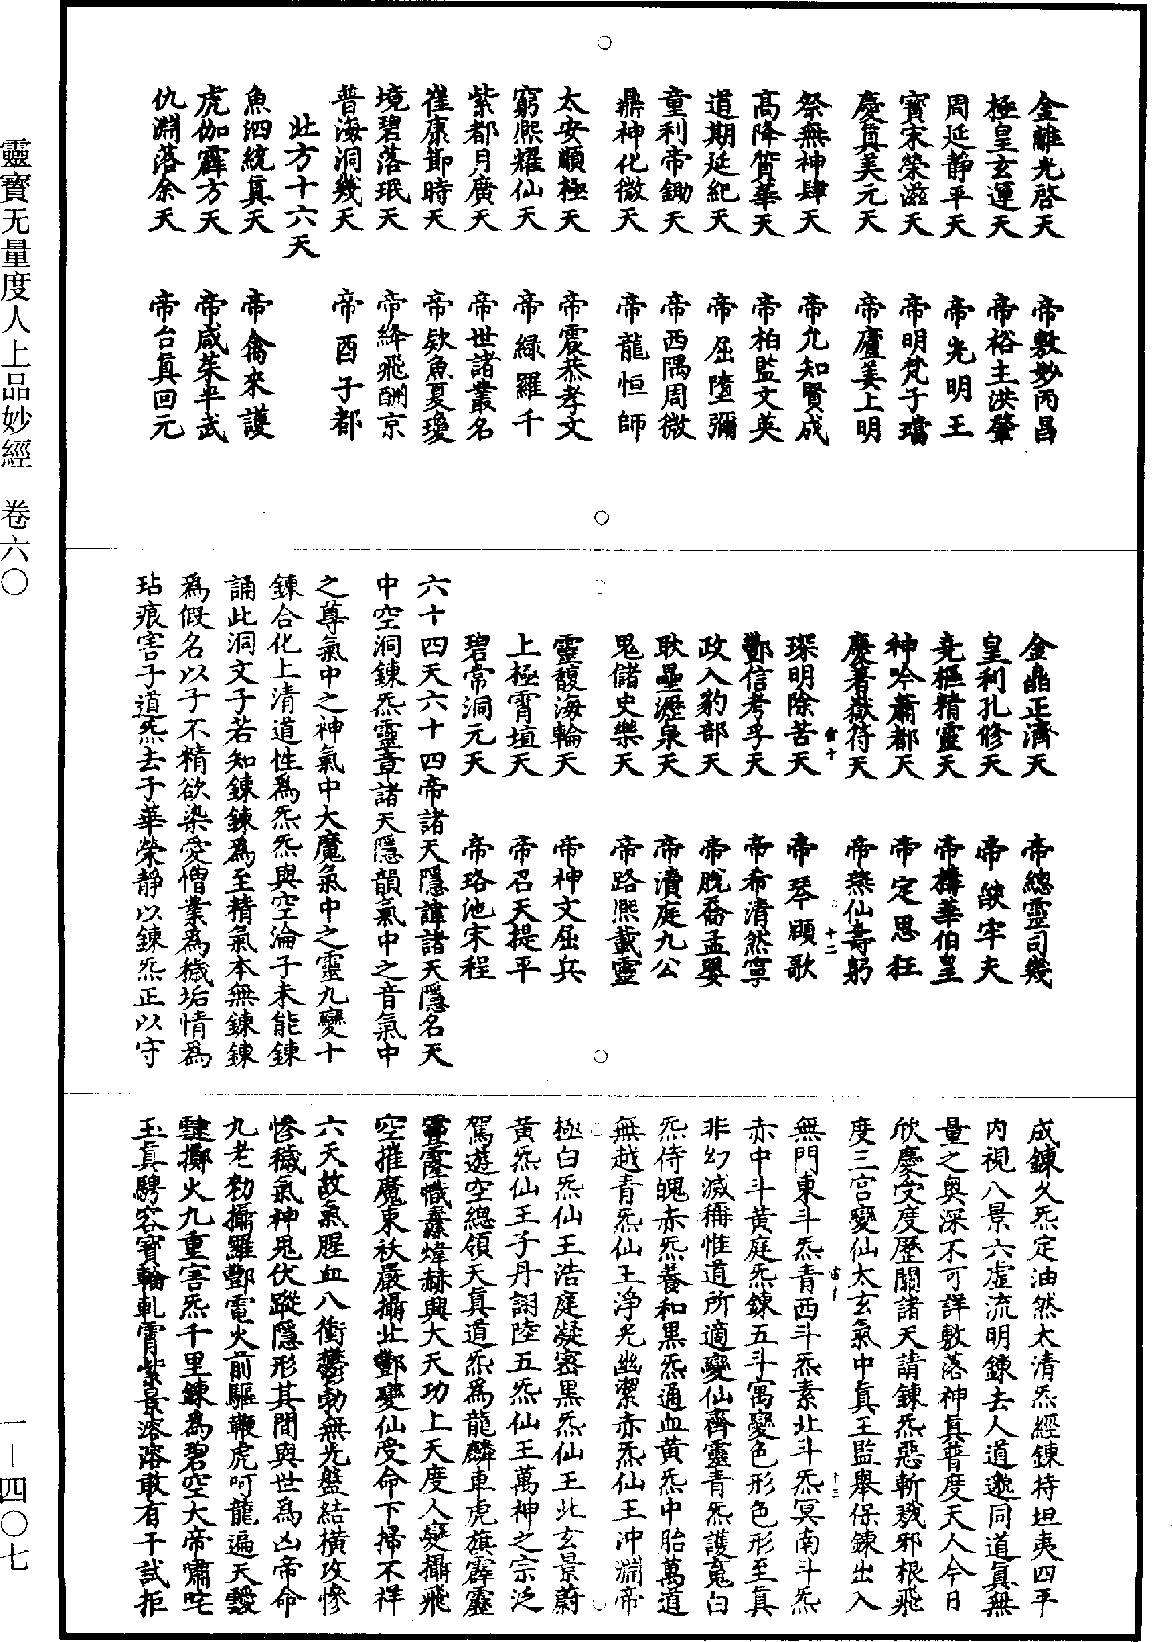 靈寶无量度人上品妙經　卷六〇
一—四〇七
金離光啓天　帝敷妙丙昌
極皇玄運天　帝裕主洪肇
周延静平天　帝光明王
寳宋榮滋天　帝明梵子璫
慶真美元天　帝廬姜上明
祭無神肆天　帝允知賢成
髙降脊華天　帝柏監文英
道期延紀天　帝屈墮彌
童利帝鋤天　帝西隅周微
鼎神化微天　帝龍恒師
太安順極天　帝震恭孝文
窮熈耀仙天　帝緑羅千
紫都月廣天　帝世諸叢名
崔康節時天　帝欻魚夏瓊
境碧落珉天　帝絳飛酬京
普海洞幾天　帝酉子都
北方十六天
魚泗統真天　帝禽來護
虎伽霹方天　帝咸茱平武
仇淵落余天　帝台真回元
金晶正濟天　帝總靈司幾
皇利孔修天　帝鈌牢夫
竟樞精靈天　帝構華伯皇
神吟蕭都天　帝定思枉
慶著嶽符天　帝無仙壽躬
琛明除苦天　帝琴頤歌
酆信考孚天　帝希清然寧
政入豹部天　帝脱喬孟嬰
耿壘瀝泉天　帝瀆庭九公
鬼儲史樂天　帝路熈載靈
靈馥海輪天　帝神文屈兵
上極霄垣天　帝召天提平
碧常洞元天　帝珞池宋程
六十四天六十四帝諸天隱諱諸天隱名天
中空洞鍊炁靈章諸天隱韻氣中之音氣中
之尊氣中之神氣中大魔氣中之靈九變十
鍊合化上清道性爲炁炁與空淪子未能鍊
誦此洞文子若知鍊鍊爲至精氣本無鍊鍊
爲假名以子不精欲染愛憎業爲穢垢情爲
玷痕害子道炁去子華榮静以鍊炁正以守
成鍊久炁定油然太清炁經鍊持坦夷四平
内視八景六虚流明鍊去人道邈同道真無
量之奥深不可詳敷落神真普度天人今日
欣慶受度歷關諸天請鍊炁惡斬殘邪根飛
度三宫變仙太玄氣中真王監舉保鍊出入
無門東斗炁青西斗炁素北斗炁冥南斗炁
赤中斗黄庭炁鍊五斗寓變色形色形至真
非幻減稱惟道所適變仙齊靈青炁護䰟白
炁侍魄赤炁養和黒炁通血黄炁中胎萬道
無越青炁仙王浄光幽潔赤炁仙王冲淵帝
極白炁仙王浩庭凝密黒炁仙王北玄景蔚
黄炁仙王子丹詡陸五炁仙王萬神之宗泛
駕遊空總領天真道炁爲龍麟車虎旗霹靂
霳幟纛煒赫興大天功上天度人變攝飛
空摧魔束祅嚴攝北酆變仙受命下掃不祥
六天故氣腥血八衝欎勃無光盤結橫攻慘
慘穢氣神鬼伏蹤隱形其間與世爲凶帝命
九老勑攝羅酆電火前驅鞭虎呵龍遍天
肆擲火九重害炁千里鍊爲碧空大帝嘯咤
玉真騁容寳輪軋霄紫景溶溶敢有干試拒